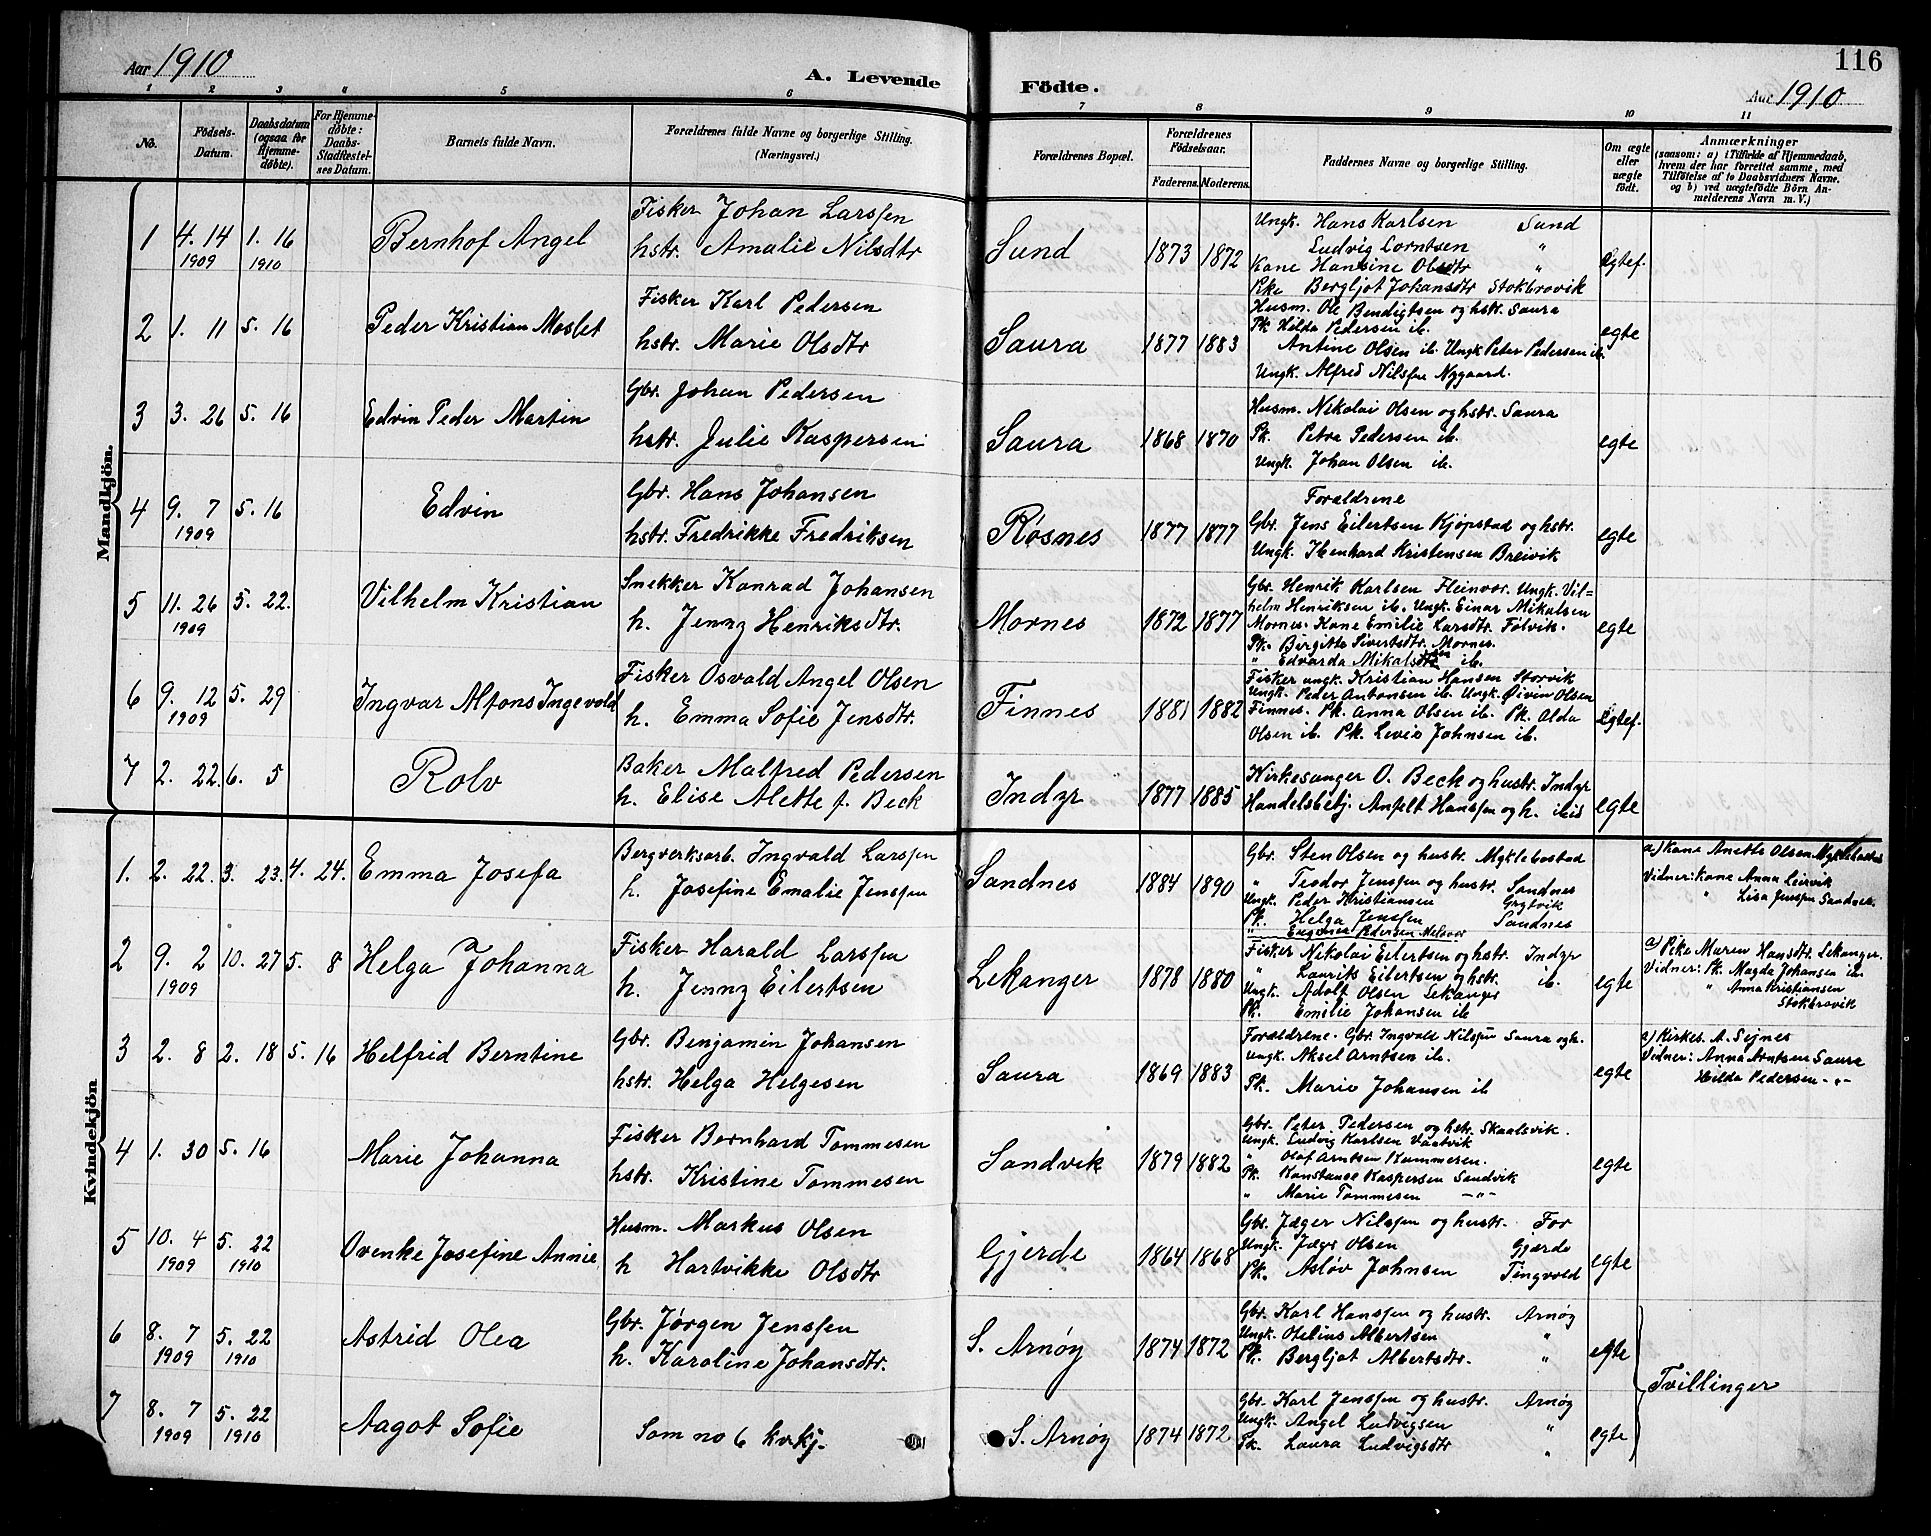 Aar 1910
A. Levende Födte.
Aar 1910
116
1 2 3 4 5 6 7 8 9 10 11
No.
Födsels-Datum.
Daabsdatum (ogsaa for Hjemme-døbte).
For Hjemme-døbte: Daabs-Stadfæstel-ses Datum.
Barnets fulde Navn.
Forældrenes fulde Navne og borgerlige Stilling. (Næringsvei.)
Forældrenes Bopæl.
Forældrenes Födselsaar.
Faderens. Moderens.
Faddernes Navne og borgerlige Stilling.
Om ægte eller uægte födt.
Anmærkninger
(saasom: a) i Tilfælde af Hjemmedaab,
hvem der har forrettet samme, med
Tilföielse af to Daabsvidners Navne.
og b) ved uægtefödte Börn An-
melderens Navn m. V.)
Mandkjön.
1 4. 14 1909 1. 16 1910 Bernhof Angel
Fisker Johan Larssen
hstr. Amalie Nilsdtr
Sund 1873 1872
Ungk. Hans Karlsen Sund
Ludvig Corntsen "
Kone Hansine Olsdtr "
Pke Bergljot Johansdtr Stokbrovik
Egtef.
2 1. 11 5. 16 Peder Kristian Moslet
Fisker Karl Pedersen
hstr. Marie Olsdtr
Saura 1877 1883
Husm. Ole Bendigtsen og hstr. Saura
Pk Hilda Pedersen ib.
Antine Olsen ib. Ungk Peter Pedersen ib.
Ungk. Alfred Nilssen Nygaard.
egte
3 3. 26 5. 16 Edvin Peder Martin
Gbr. Johan Pedersen
hstr. Julie Kaspersen
Saura 1868 1870
Husm. Nikolai Olsen og hstr. Saura
Pk. Petra Pedersen ib.
Ungk. Johan Olsen ib.
egte
4 9. 7 1909 5. 16 Edvin
Gbr. Hans Johansen
hstr. Fredrikke Fredriksen
Røsnes 1877 1877
Foraldrene
Gbr. Jens Eilertsen Kjøpstad og hstr.
Ungk. Ibenhard Kristensen Breivik
egte
5 11. 26 1909 5. 22. Vilhelm Kristian
Snekker Konrad Johansen
h. Jenny Henriksdtr.
Mornes 1872 1877
Gbr. Henrik Karlsen Fleinvær. Ungk. Vil=
helm Henriksen ib. Ungk. Einar Mikalsen
Mornes. Kone Emilie Larsdtr. Følvik.
Pk. Birgitte Sivertsdtr. Mornes.
" Edvarda Mikalsdtr ib.
egte
6 9. 12 1909 5. 29 Ingvar Alfons Ingevold
Fisker Osvald Angel Olsen
h. Emma Sofie Jensdtr.
Finnes 1881 1882
Fisker ungk. Kristian Hansen Storvik
Ungk. Peder Antonsen ib. Ungk. Øivin Olsen
Finnes. Pk. Anna Olsen ib. Pk. Alda
Olsen ib. Pk. Levie Johnsen ib.
Egtef.
7 2. 22. 6. 5 Rolv
Baker Malfred Pedersen
h. Elise Alette f. Beck
Indyr 1877 1885
Kirkesanger O. Beck og hustr. Indyr
Handelsbetj. Anfelt Hanssen og h. ibid
egte
Kvindekjön
1. 2. 22. 3. 23. 4. 24. Emma Josefa
Bergverksarb. Ingvald Larssen
h. Josefine Emalie Jenssen
Sandnes 1884 1890
Gbr. Sten Olsen og hustr. Myklebostad
" Teodor Jenssen og hustr. Sandnes
Ungk. Peder Kristiansen Grytvik
Pk. Helga Jenssen Sandnes
" Eugenie Pedersen Melsvor
a) Kone Anette Olsen Myklebostad
Vidner: Kone Anna Leirvik
" Lisa Jenssen Sandnes.
2 9. 2 1909 10. 27 5. 8 Helga Johanna
Fisker Harald Larssen
h. Jenny Eilertsen
Lekanger 1878 1880
Fisker Nikolai Eilertsen og hstr. Indyr
" Laurits Eilertsen og hstr. ib.
Ungk. Adolf Olsen Lekanger
Pk. Emilie Johansen ib
egte
a) Pike Maren Hansdtr. Lekanger.
Vidner: Pk. Magda Johansen ib
" Anna Kristiansen
Stokbrovik
3 2. 8 2. 18 5. 16 Helfrid Berntine
Gbr. Benjamin Johansen
hstr. Helga Helgesen
Saura 1869 1883
Foraldrene. Gbr. Ingvald Nilssen Saura og h.
Ungk. Aksel Arntsen ib.
Pk. Marie Johansen ib
egte
a) Kirkes. A. Sejnes
Vidner: Anna Arntsen Saura
Hilda Pedersen -"-
4 1. 30 5. 16 Marie Johanna
Fisker Bernhard Tommesen
hstr. Kristine Tommesen
Sandvik 1879 1882
Gbr. Peter Pedersen og hstr. Skaalsvik.
Ungk. Ludvig Karlsen Vaatvik
" Olaf Arntsen Kammeren.
Pk. Konstanse Kaspersen Sandvik
" Marie Tommesen -"-
egte
5 10. 4 1909 5. 22 1910 Ovenke Josefine Annie
Husm. Markus Olsen
h Hartvikke Olsdtr
Gjerde 1864 1868
Gbr. Jæger Nilssen og hustr. For
Ungk. Jæger Olsen Gjærde
Pk. Asløv Johnsen Tingvold
egte
6 8. 7 1909 5. 22 1910 Astrid Olea
Gbr. Jørgen Jenssen
h. Karoline Johansdtr.
S. Arnøy 1874 1872
Gbr. Karl Hanssen og hustr. Arnøy
Ungk. Otelius Albertsen "
Pk. Bergljot Albertsdtr. "
egte
Tvillinger
7 8. 7 1909 5. 22 1910 Aagot Sofie
Som no 6 kvkj.
S. Arnøy 1874 1872
Gbr. Karl Jenssen og hustr. Arnøy
Ungk. Angel Ludvigsen "
Pk. Laura Ludvigsdtr "
egte